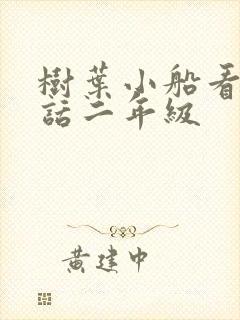 樹葉小船看
話二年級
黃建中